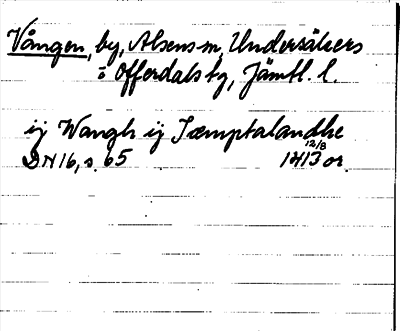 Vången, by, Alsens sn, Undersåkers
o Offerdals tg, Jämtl. l.
ij Wangh ij Jæmptalandhe
12/8
DN 16, s. 65 1413 or.